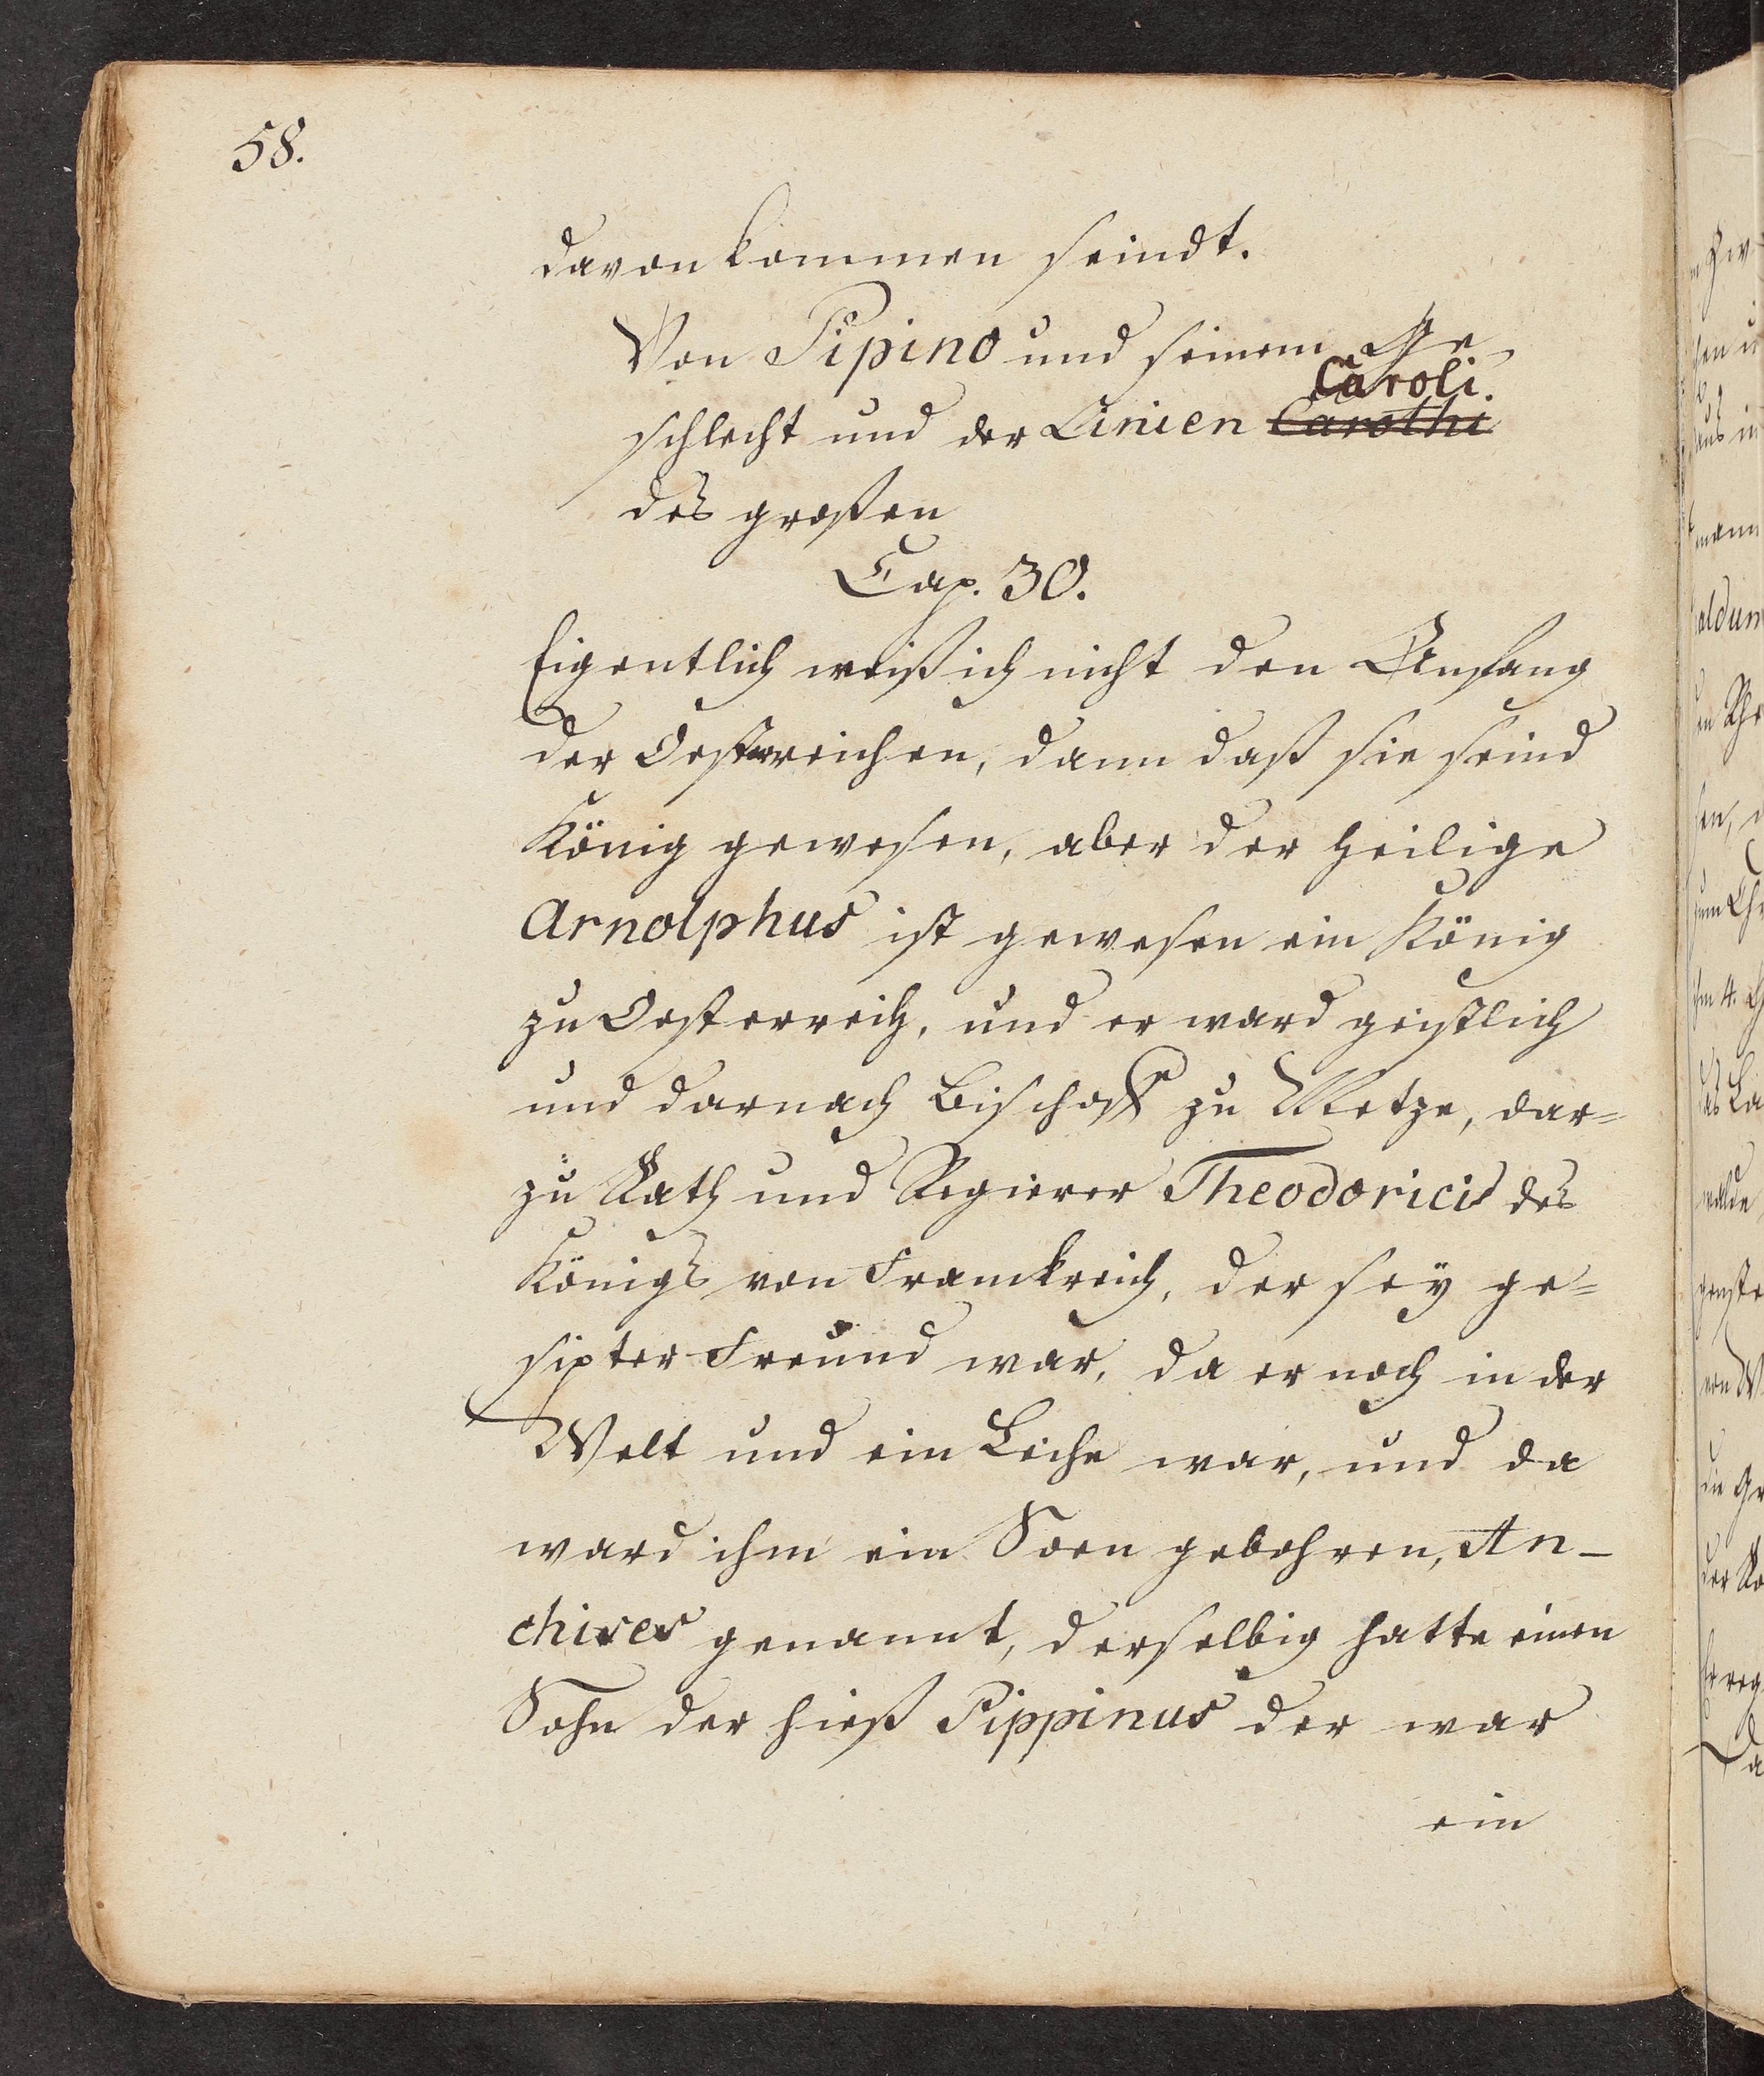 58.
davon kommen seindt.
Von Pipino und seinem Ge-
Caroli.
schlecht und der Linien Carothi
des großen
Cap. 30.
Eigentlich weiß ich nicht den Anfang
der Oesterreichen, dann daß sie seind
König gewesen, aber der heilige
Arnolphus ist gewesen ein König
zu Oesterreich, und er ward geistlich
und darnach Bischoff zu Metze, dar=
zu Rath und Regierer Theodorici des
Königs von Franckreich, der sey ge=
sipter Freund war, da er noch in der
Welt und ein Leihe war, und da
ward ihm ein Soen gebohren, An-
chises genannt, derselbig hatte einen
Sohn der hieß Pippinus der war
ein